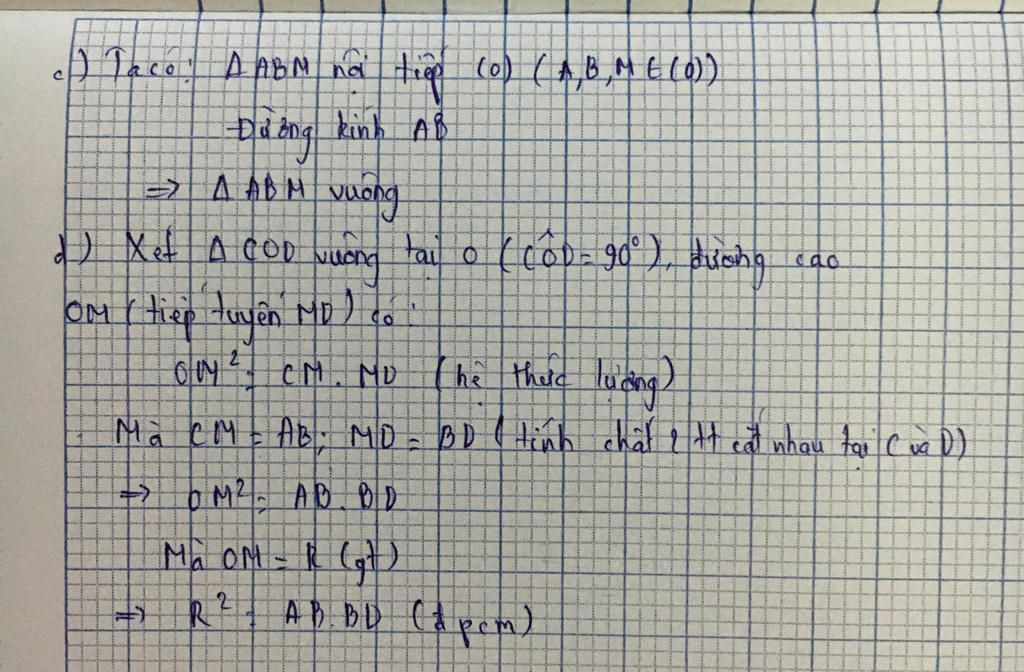 c) Ta có: Δ ABM nội tiếp (O) (A,B,M ∈ (O))
Đường kính AB
=> Δ ABM vuông
d) Xét Δ COD vuông tại O (CÔD = 90°), đường cao
OM (tiếp tuyến MD) có:
OM² = CM . MD (hệ thức lượng)
Mà CM = AB; MD = BD (tính chất 2 tt cắt nhau tại C và D)
=> OM² = AB . BD
Mà OM = R (gt)
=> R² = AB . BD (đpcm)